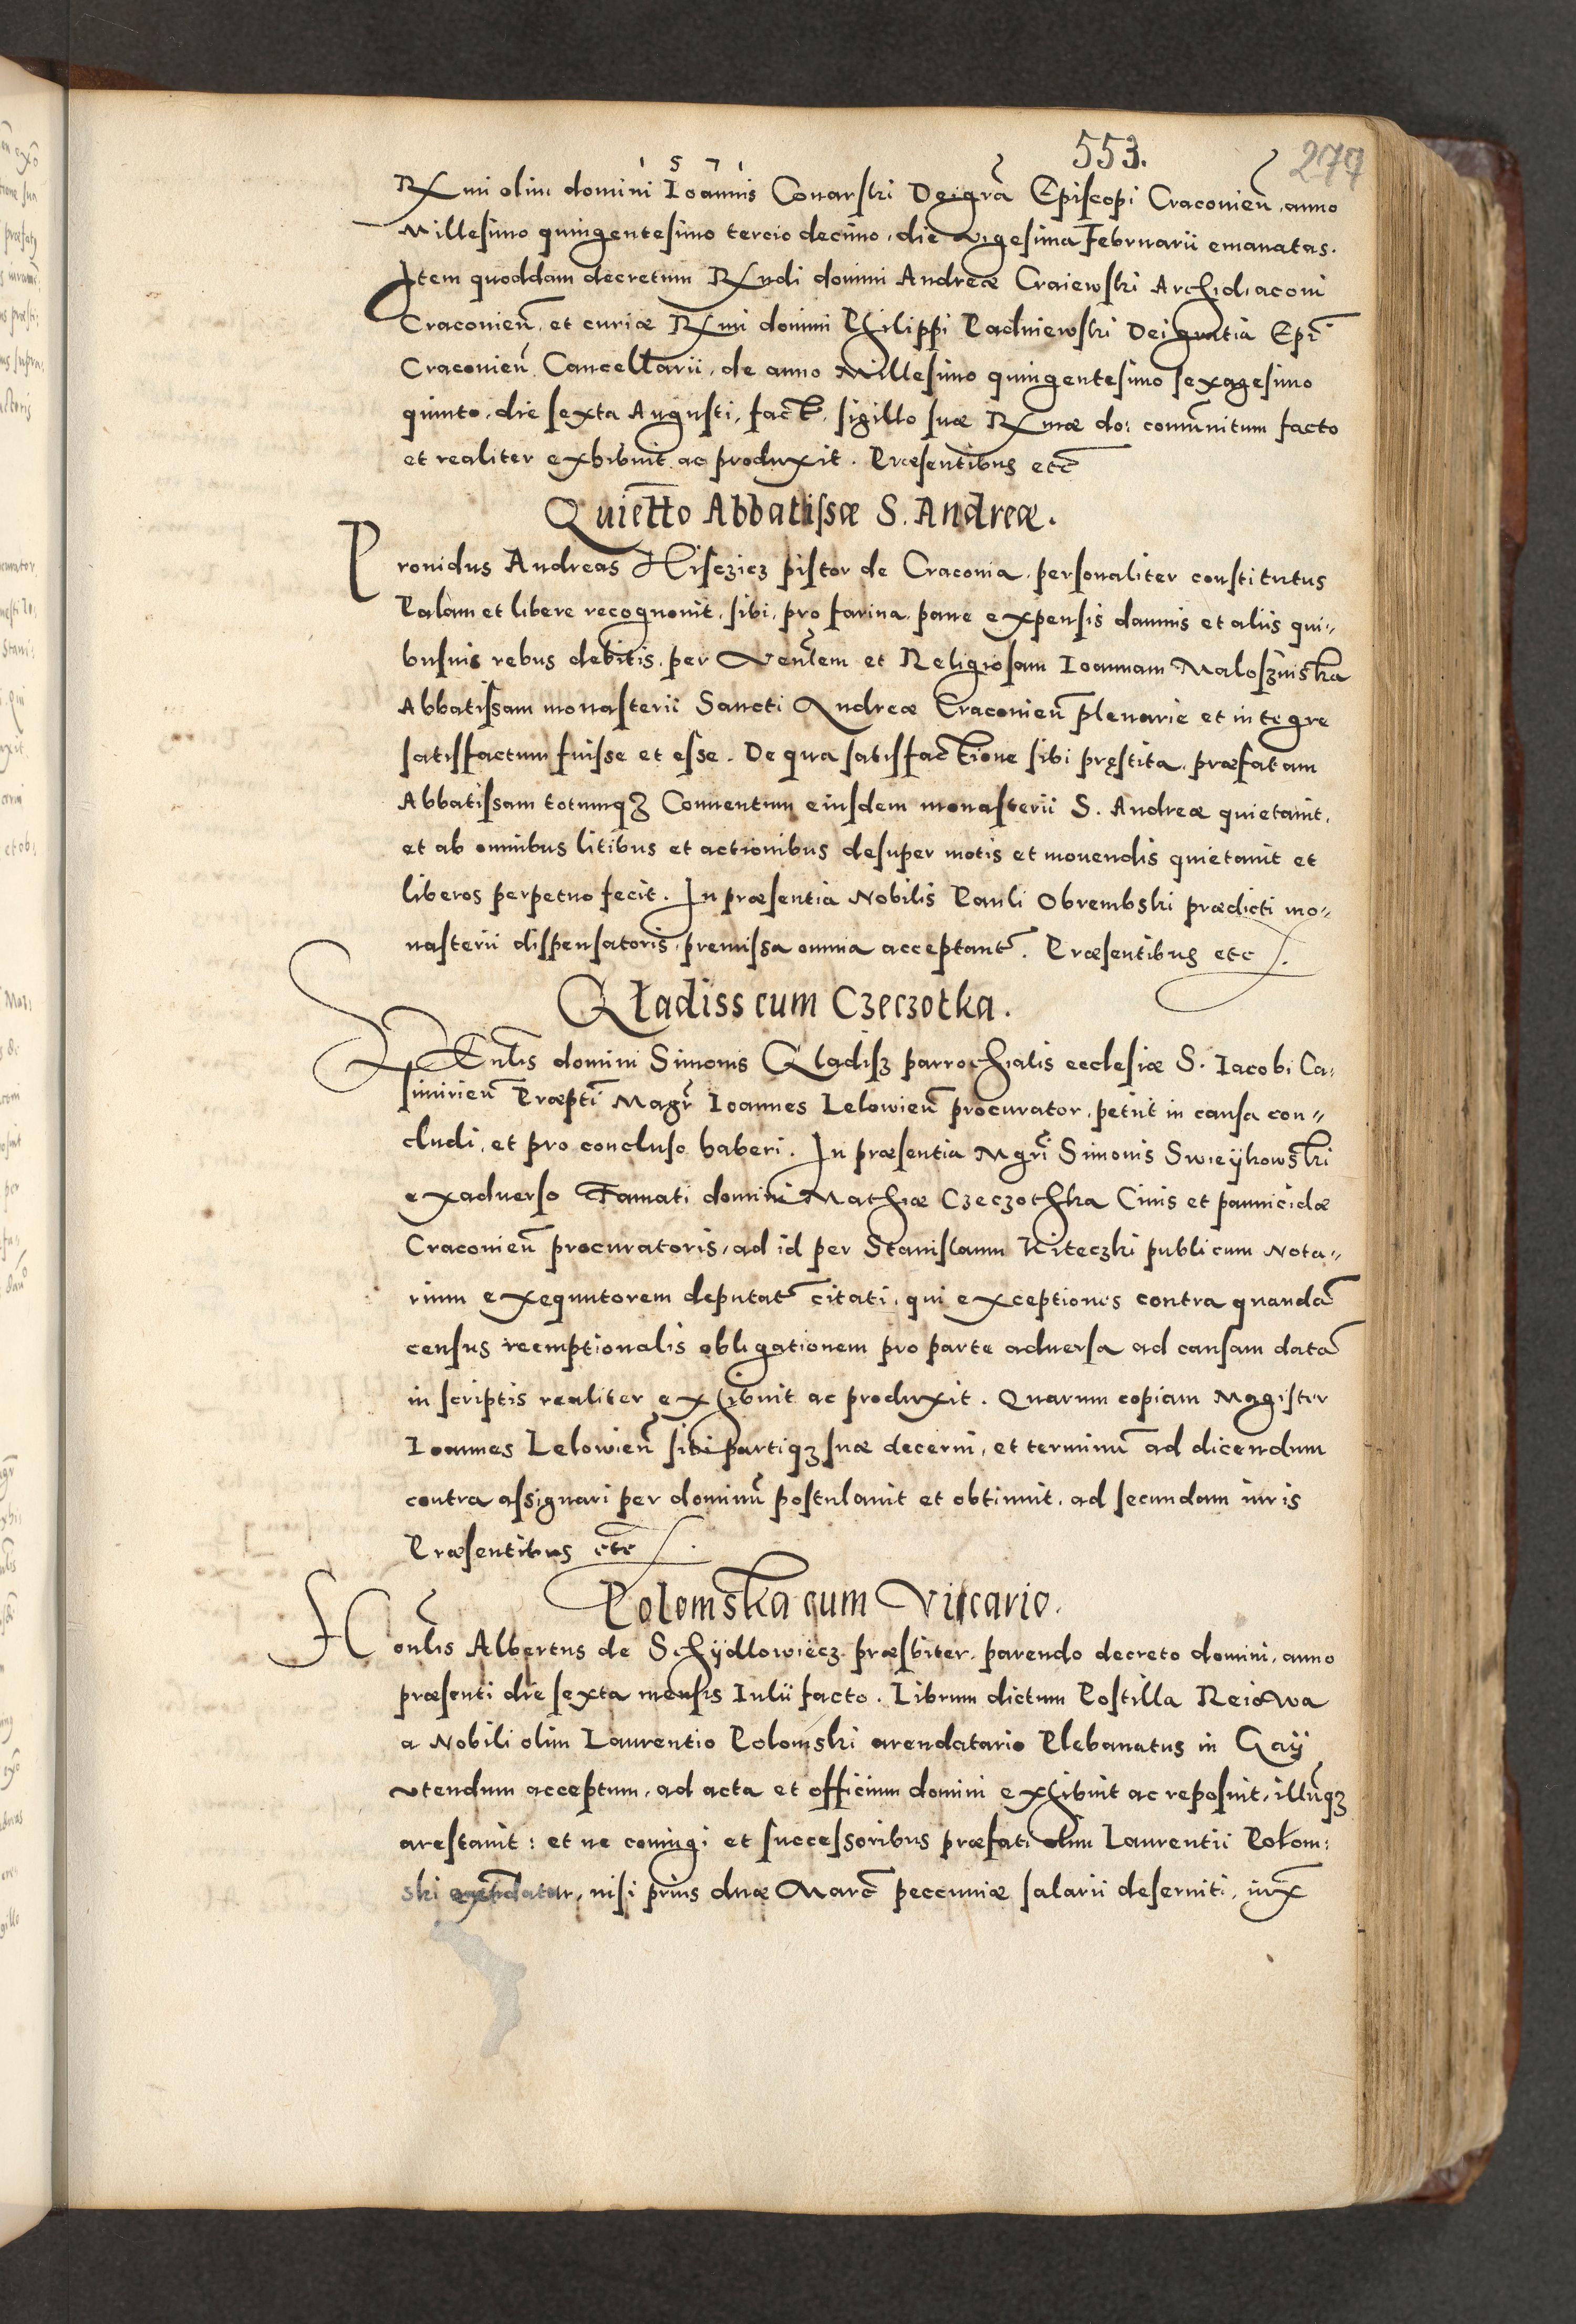 1571
553.
279
Rx̅mi olim domini Ioannis Conarski Dei gr̅a Episcopi Craconien̅, anno
Millesimo quingentesimo tercio decimo, die vigesima Februarii emanatas.
Item quoddam decretum Rx̅ndi domini Andreæ Craiewski Archidiaconi
Craconien̅, et curiæ Rx̅mi domini Philippi Padniewski Dei gratia Ep̅i
Craconien̅ Cancellarii, de anno Millesimo quingentesimo sexagesimo
quinto, die sexta Augusti, fact̅, sigillo suæ Rx̅mæ do: comu̅nitum facto
et realiter exhibuit ac produxit. Præsentibus etc̅
Quiett̅o Abbatissæ S. Andreæ.
Prouidus Andreas Hisczicz pistor de Craconia, personaliter constitutus
Palam et libere recognouit, sibi, pro farina, pane expensis damnis et aliis qui-
busuis rebus debitis, per Ven̅lem et Religiosam Ioannam Maloszinska
Abbatissam monasterii Sancti Andreæ Craconien̅ plenarie et integre
satisfactum fuisse et esse. De qua satisfactione sibi pręstita, præfatam
Abbatissam totumqꝫ Conuentum eiusdem monasterii S. Andreæ quietauit,
et ab omnibus litibus et actionibus desuper motis et mouendis quietauit et
liberos perpetuo fecit. In præsentia Nobilis Pauli Obrembski prædicti mo-
nasterii dispensatoris, premissa omnia acceptant̅. Præsentibus etc.
Gładiss cum Czeczotka.
Ven̅lis domini Simonis Gladisz parrochialis ecclesiæ S. Iacobi Ca:
simirien̅ Præpti̅ Magr̅ Ioannes Lelowien̅ procurator, petiit in causa con-
cludi, et pro concluso haberi. In præsentia Mgr̅i Simonis Swieykowski
ex aduerso Famati domini Mathiæ Czeczothka Ciuis et pannicidæ
Craconien̅ procuratoris, ad id per Stanislaum Kiteczki publicum Nota-
rium exequutorem deputat̅ citati, qui exceptiones contra quanda̅
census reemptionalis obligationem pro parte aduersa ad causam data̅
in scriptis realiter exhibuit ac produxit. Quarum copiam Magister
Ioannes Lelowien̅ sibi partiqꝫ suæ decerni, et terminu̅ ad dicendum
contra assignari per dominu̅ postulauit et obtinuit, ad secundam iuris
Præsentibus etc̅.
Polomska cum Viccario.
Hon̅lis Albertus de Schydlowiecz præsbiter, parendo decreto domini, anno
præsenti die sexta mensis Iulii facto. Librum dictum Postilla Reiowa
a Nobili olim Laurentio Polomski arendatario Plebanatus in Gay
vtendum acceptum, ad acta et officium domini exhibuit ac reposuit, illu̅qꝫ
arestauit: et ne coniugi et successoribus præfati olim Laurentii Połom:
ski extradatur, nisi prius duæ Marc̅ peccuniæ salarii deseruiti, iux̅